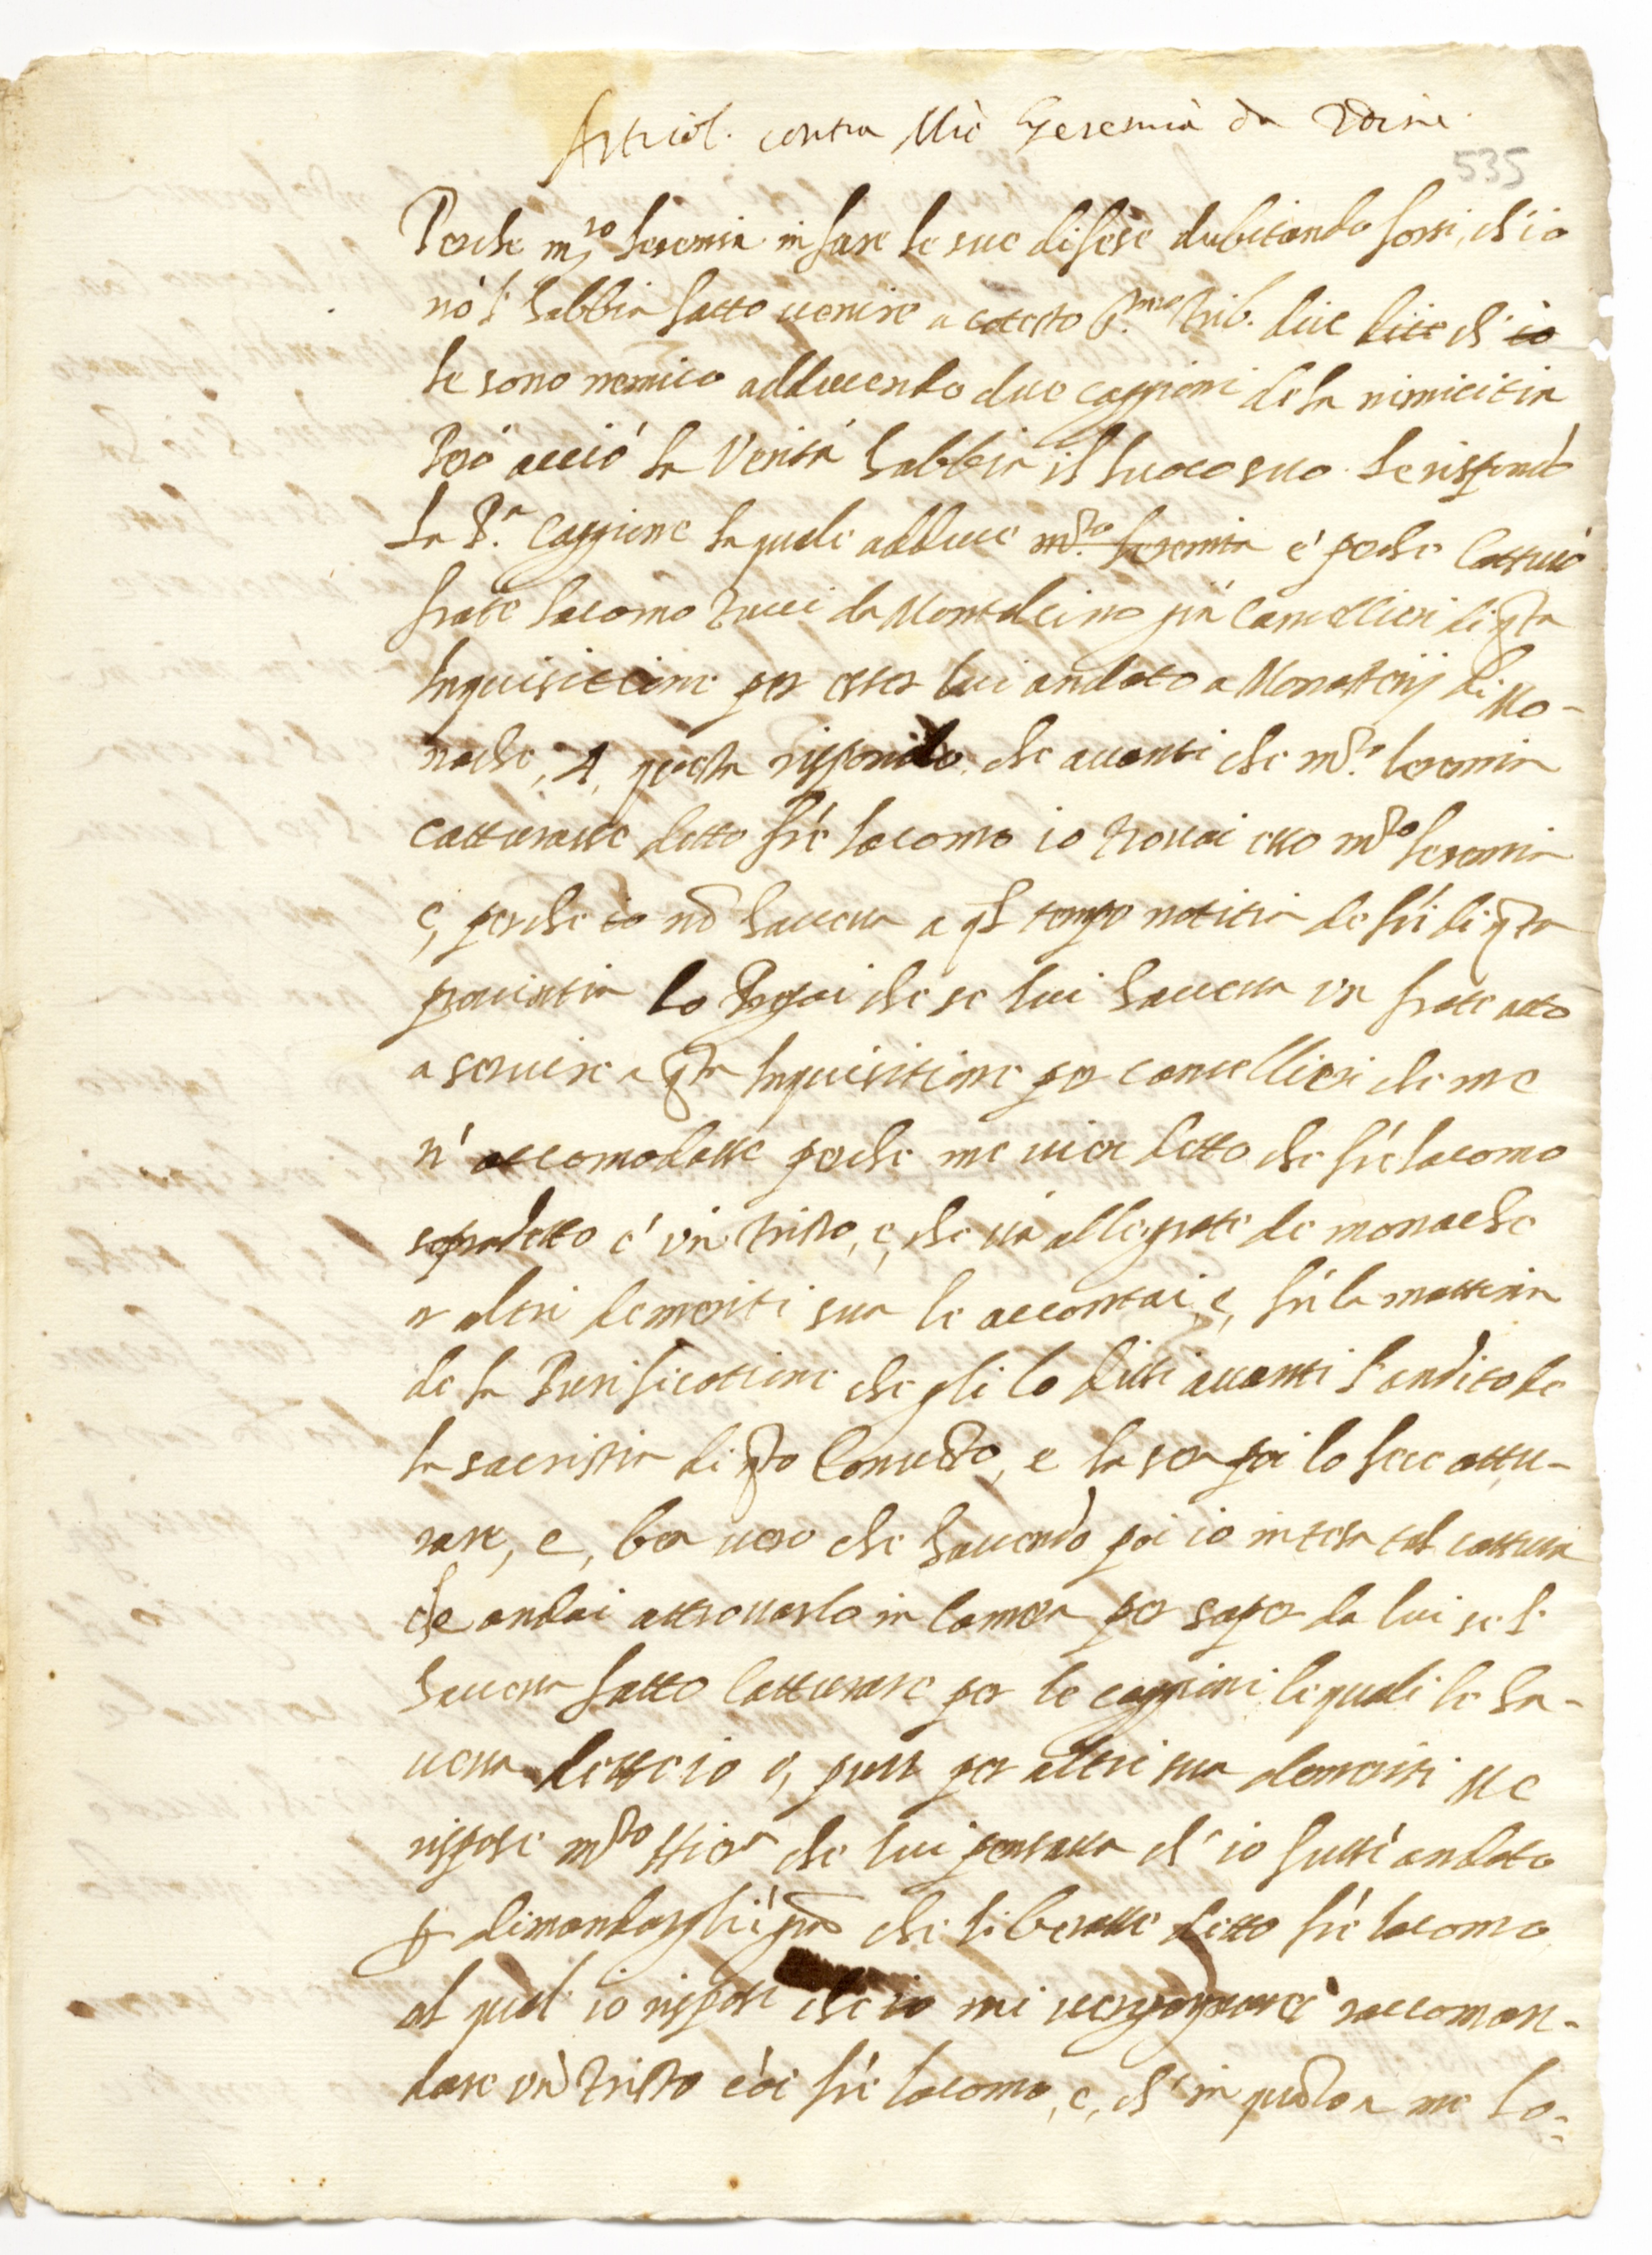 Articol. contra Mro Geremia da Udine
535
Perche m.ro Ieremia in fare le sue difese dubitando forsi, ch'io
nō l'habbia fatto venire a cotesto S.mo Trib. dice ch'
le sono nemico adducendo due caggioni de la nimicitia
Però acciò la Verità habbia il luoco suo le rispondo
La P.a Caggione la quale adduce m.ro Ieremia è perche Catturò
frate Iacomo Tucci da Montalcino già Cancellieri di q̄sta
Inquisittione per esser lui andato a Monasterij di Mo-
nache, A, questa rispondo che avanti che m.ro Ieremia
catturasse detto frà Iacomo io trovai esso m.ro Ieremia
e, perche io nō haveva a q̄l tempo notitia de frà di q̄sta
provintia lo pregai che se lui haveva un frate atto
a servire a q̄sta Inquisitione per cancellieri che me
n' accomodasse perche me vien detto che frà Iacomo
sopradetto è un tristo, e, che và alle grate de monache
et altri demeriti sua le accontai, e, fù la mattina
de la Purificatione che gli lo dissi avanti l'andito de
la sacristia di q̄sto Convēto, e la sera poi lo fece cattu-
rare, e, ben vero che havendo poi io intesa tal cattura
che andai attrovarlo in Camera per saper da lui se l'
haveva fatto Catturare per le caggioni le quali le ha-
veva dette io o, pure per altri sua demeriti Me
rispose m.ro che lui pensava ch' io fussi andato
p dimandargli grā che liberasse detto frà Iacomo
al qual io risposi che io mi vergognarei raccoman-
dare un tristo cōe frà Iacomo, e, ch' in quāto a me lo-